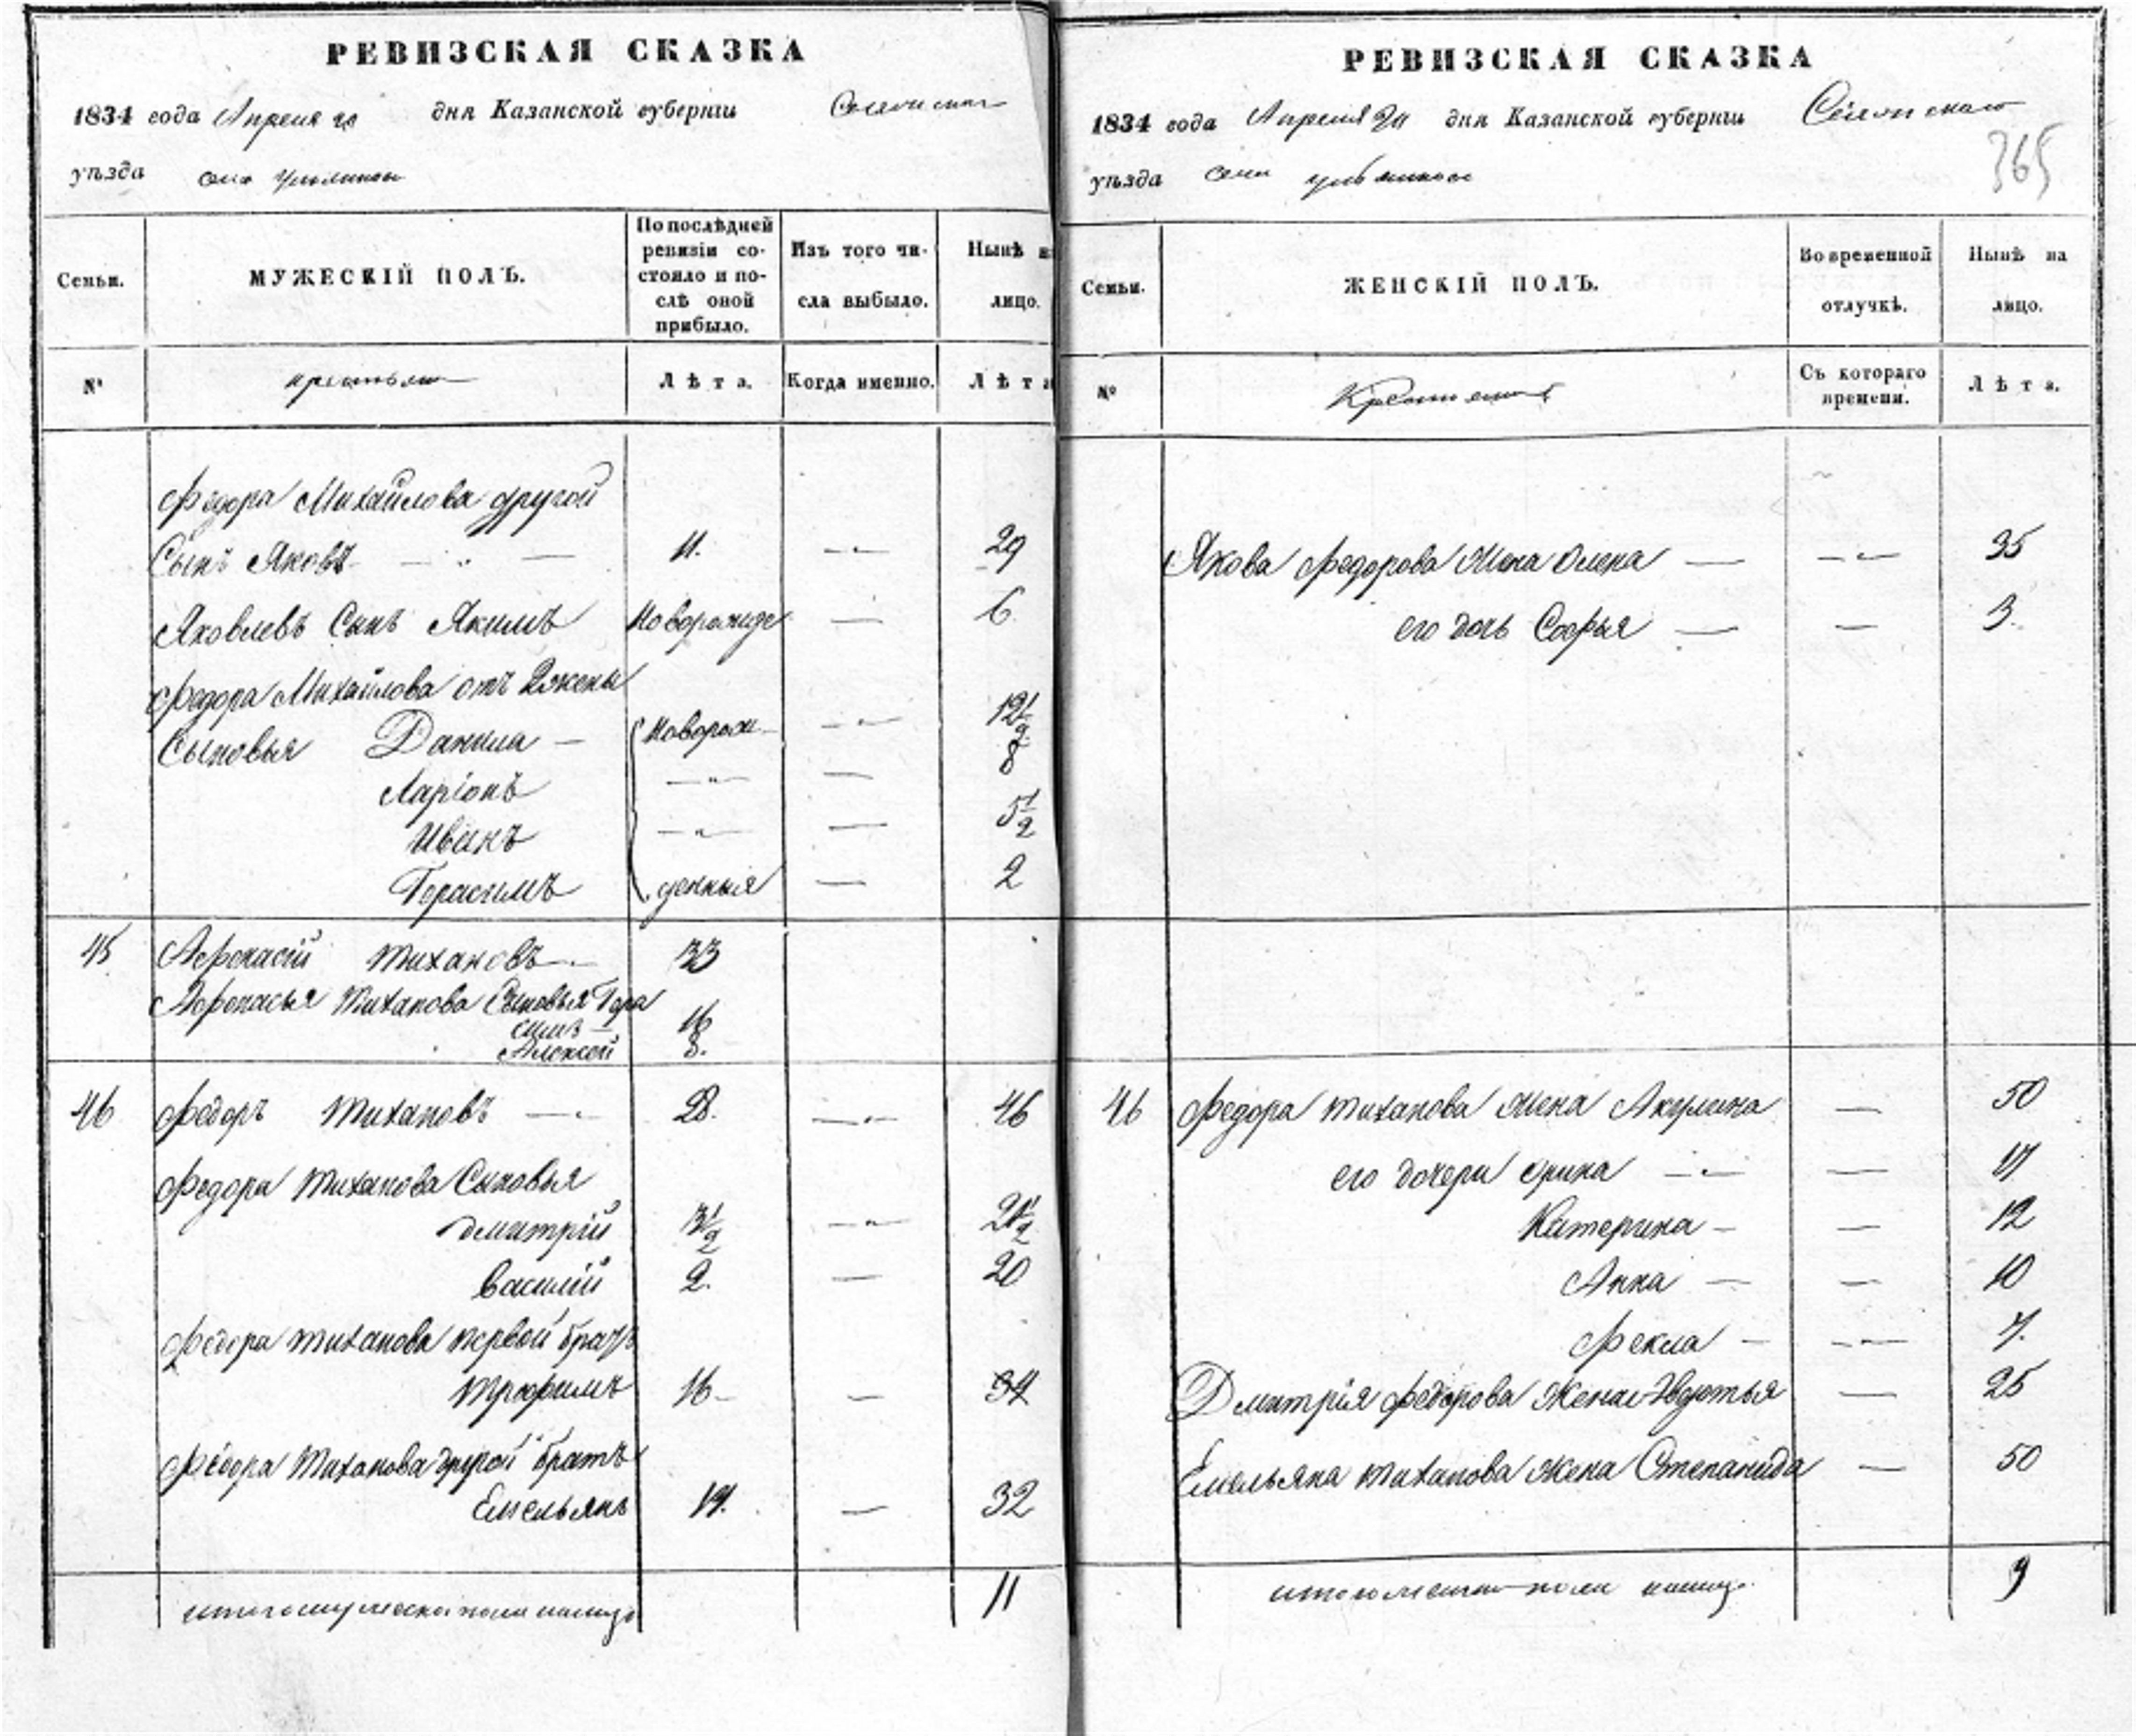 РЕВИЗСКАЯ СКАЗКА
1834 года Апреля 20 дня Казанской губернiи
уѣзда села
Семьи.
МУЖЕСКІЙ ПОЛЪ.
По послѣдней ревизіи со-
стояло и по-
слѣ оной
прибыло.
Изъ того чи-
сла выбыло.
Нынѣ
лицо.
№
крестьяне
Лѣта.
Когда именно.
Лѣта
Федора Михайлова другой
Сынъ Яковъ — 11. — 29
Яковлевъ Сынъ Якимъ Новорожде — 6
Федора Михайлова отъ 2 жены
Сыновья Данила — Новорож — 12 1/2
Ларіонъ — — 8
Иванъ — — 5 1/2
Герасимъ денныя — 2
45 Афонасій Тихановъ — 33
Афонасья Тиханова Сыновья Гера
симъ — 16
Алексей 8.
46 Федоръ Тихановъ — 28. — 46
Федора Тиханова Сыновья
Дмитрій 3 1/2 — 21 1/2
Василій 2. — 20
Федора Тиханова первой братъ
Трофимъ 16 — 34
Федора Тиханова другой братъ
Емельянъ 14. — 32
итого мужеска пола налицо 11
РЕВИЗСКАЯ СКАЗКА
1834 года Апреля 20 дня Казанской губернiи
365
уѣзда села
Семьи.
ЖЕНСКІЙ ПОЛЪ.
Во временной
отлучкѣ.
Нынѣ на
лицо.
№
Съ котораго
времени.
Лѣта.
Якова Федорова Жена Олена — — 35
его дочь Софья — — 3.
46 Федора Тиханова Жена Акулина — 50
его дочери Орина — — 17
Катерина — — 12
Анна — — 10
Фекла — — 7.
Дмитрія Федорова Жена Авдотья — 25
Емельяна Тиханова Жена Степанида — 50
итого женска пола налицо 9